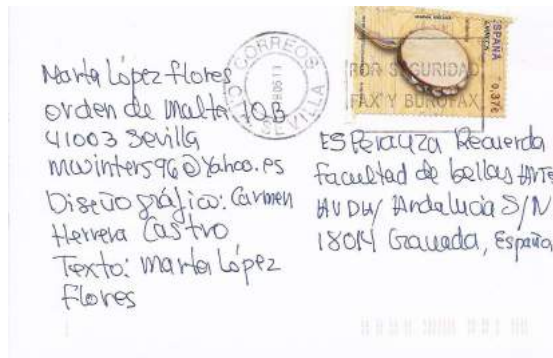 Marta López flores
orden de Malta 10B
41003 Sevilla
mwinters96@yahoo.es
Diseño gráfico: Carmen
Herrera Castro
Texto: Marta López
Flores
CORREOS
SEVILLA
ESPAÑA
CORREOS
0,37€
POR SEGURIDAD
FAX Y BUROFAX
ESPeranza Recuerda
facultad de bellas ARTE
AVDA/ Andalucia S/N
18014 Granada, España